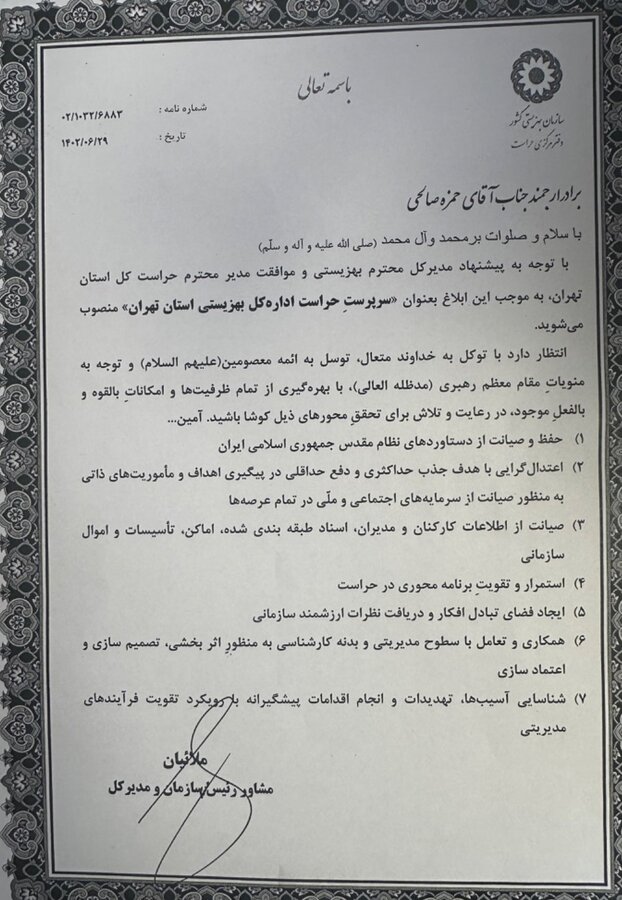 باسمه تعالی
سازمان بهزیستی کشور
دفتر مرکزی حراست
شماره نامه : ۰۲/۱۰۳۲/۶۸۸۳
تاریخ : ۱۴۰۲/۰۶/۲۹
برادر ارجمند جناب آقای حمزه صالحی
با سلام و صلوات بر محمد و آل محمد (صلی الله علیه و آله و سلّم)
با توجه به پیشنهاد مدیرکل محترم بهزیستی و موافقت مدیر محترم حراست کل استان
تهران، به موجب این ابلاغ بعنوان «سرپرستِ حراست اداره‌کل بهزیستی استان تهران» منصوب
می‌شوید.
انتظار دارد با توکل به خداوند متعال، توسل به ائمه معصومین(علیهم السلام) و توجه به
منویاتِ مقام معظم رهبری (مدظله العالی)، با بهره‌گیری از تمام ظرفیت‌ها و امکاناتِ بالقوه و
بالفعلِ موجود، در رعایت و تلاش برای تحققِ محورهای ذیل کوشا باشید. آمین...
۱) حفظ و صیانت از دستاوردهای نظام مقدس جمهوری اسلامی ایران
۲) اعتدال‌گرایی با هدف جذب حداکثری و دفع حداقلی در پیگیری اهداف و مأموریت‌های ذاتی
به منظور صیانت از سرمایه‌های اجتماعی و ملّی در تمام عرصه‌ها
۳) صیانت از اطلاعات کارکنان و مدیران، اسناد طبقه بندی شده، اماکن، تأسیسات و اموال
سازمانی
۴) استمرار و تقویتِ برنامه محوری در حراست
۵) ایجاد فضای تبادل افکار و دریافت نظرات ارزشمند سازمانی
۶) همکاری و تعامل با سطوح مدیریتی و بدنه کارشناسی به منظورِ اثر بخشی، تصمیم سازی و
اعتماد سازی
۷) شناسایی آسیب‌ها، تهدیدات و انجام اقدامات پیشگیرانه با رویکرد تقویت فرآیندهای
مدیریتی
ملائیان
مشاور رئیس سازمان و مدیرکل